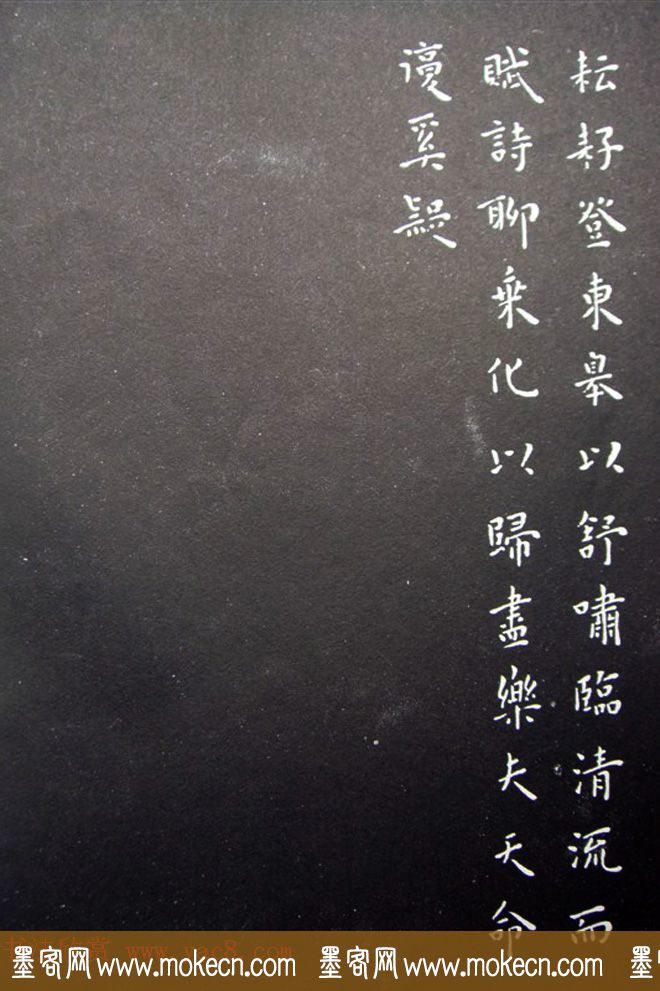 耘耔登東皋以舒嘯臨清流而
賦詩聊乗化以歸盡樂夫天命
復奚疑
www.yac8.com
墨客网 www.mokecn.com 墨客网 www.mokecn.com